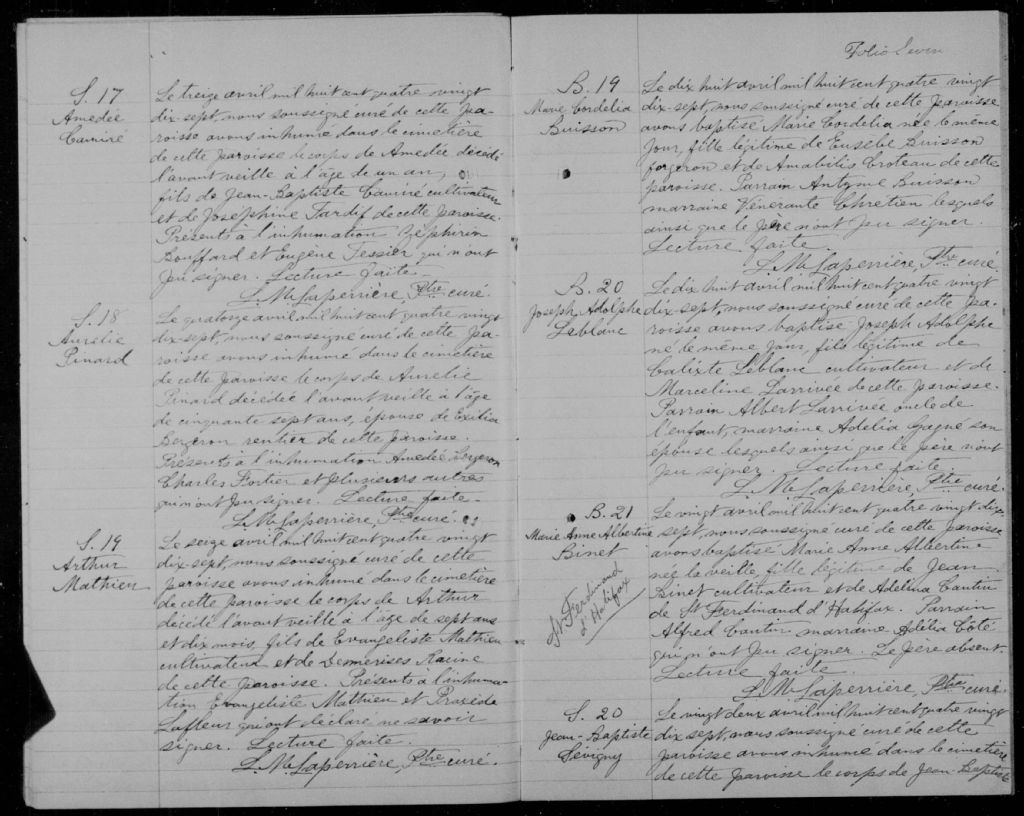 S. 17
Amedée
Camiré
Le treize avril mil huit cent quatre vingt
dix-sept, nous soussigné curé de cette pa-
roisse avons inhumé dans le cimetière
de cette paroisse le corps de Amedée décédé
l'avant veille à l'âge de un an,
fils de Jean-Baptiste Camiré cultivateur
et de Josephine Tardif de cette paroisse.
Présents à l'inhumation Zéphirin
Bouffard et Eugène Tessier qui n'ont
pu signer. Lecture faite.
L. M. Laperrière, Ptre curé.
S. 18
Aurélie
Pinard
Le quatorze avril mil huit cent quatre vingt
dix-sept, nous soussigné curé de cette pa-
roisse avons inhumé dans le cimetière
de cette paroisse le corps de Aurélie
Pinard décédée l'avant veille à l'âge
de cinquante sept ans, épouse de Exilia
Bergeron rentier de cette paroisse.
Présents à l'inhumation Amedée Bergeron
Charles Fortier et plusieurs autres
qui n'ont pu signer. Lecture faite.
L. M. Laperrière, Ptre curé.
S. 19
Arthur
Mathieu
Le seize avril mil huit cent quatre vingt
dix-sept, nous soussigné curé de cette
paroisse avons inhumé dans le cimetière
de cette paroisse le corps de Arthur
décédé l'avant veille à l'âge de sept ans
et dix mois, fils de Evangeliste Mathieu
cultivateur et de Demerises Racine
de cette paroisse. Présents à l'inhuma-
tion Evangeliste Mathieu et Praxède
Lafleur qui ont déclaré ne savoir
signer. Lecture faite.
L. M. Laperrière, Ptre curé.
Folio Seven
B. 19
Marie Cordelia
Buisson
Le dix huit avril mil huit cent quatre vingt
dix-sept, nous soussigné curé de cette paroisse
avons baptisé Marie Cordelia née le même
jour, fille légitime de Eusebe Buisson
forgeron et de Amabilis Croteau de cette
paroisse. Parrain Antyme Buisson
marraine Vénérante Chretien lesquels
ainsi que le père n'ont pu signer.
Lecture faite.
L. M. Laperrière, Ptre curé.
B. 20
Joseph Adolphe
Leblanc
Le dix huit avril mil huit cent quatre vingt
dix-sept, nous soussigné curé de cette pa-
roisse avons baptisé Joseph Adolphe
né le même jour, fils légitime de
Calixte Leblanc cultivateur et de
Marceline Larrivée de cette paroisse.
Parrain Albert Larrivée oncle de
l'enfant, marraine Adelia Gagné son
épouse lesquels ainsi que le père n'ont
pu signer. Lecture faite.
L. M. Laperrière, Ptre curé.
B. 21
Marie Anne Albertine
Binet
St Ferdinand
d'Halifax
Le vingt avril mil huit cent quatre vingt dix-
sept, nous soussigné curé de cette paroisse
avons baptisé Marie Anne Albertine
née la veille, fille légitime de Jean
Binet cultivateur et de Adelina Cantin
de St Ferdinand d'Halifax. Parrain
Alfred Cantin marraine Adélia Coté
qui n'ont pu signer. Le père absent.
Lecture faite.
L. M. Laperrière, Ptre curé.
S. 20
Jean-Baptiste
Sévigny
Le vingt deux avril mil huit cent quatre vingt
dix sept, nous soussigné curé de cette
paroisse avons inhumé dans le cimetière
de cette paroisse le corps de Jean-Baptiste